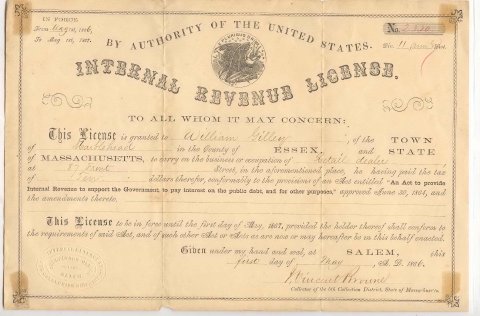 IN FORCE
From May 1st, 1866,
To May 1st, 1867.
No.
BY AUTHORITY OF THE UNITED STATES.
Div. 11
INTERNAL REVENUE LICENSE.
TO ALL WHOM IT MAY CONCERN:
This License is granted to William Gilley, of the TOWN
of Marblehead in the County of ESSEX, and STATE
of MASSACHUSETTS, to carry on the business or occupation of Retail dealer
at 87 Front Street, in the aforementioned place, he having paid the tax
of Ten dollars therefor, conformably to the provisions of an Act entitled "An Act to provide
Internal Revenue to support the Government, to pay interest on the public debt, and for other purposes," approved June 30, 1864, and
the amendments thereto.
This License to be in force until the first day of May, 1867, provided the holder thereof shall conform to
the requirements of said Act, and of such other Act or Acts as are now or may hereafter be in this behalf enacted.
Given under my hand and seal, at SALEM, this
first day of May, A. D. 1866.
J. Vincent Browne
Collector of the 5th Collection District, State of Massachusetts.